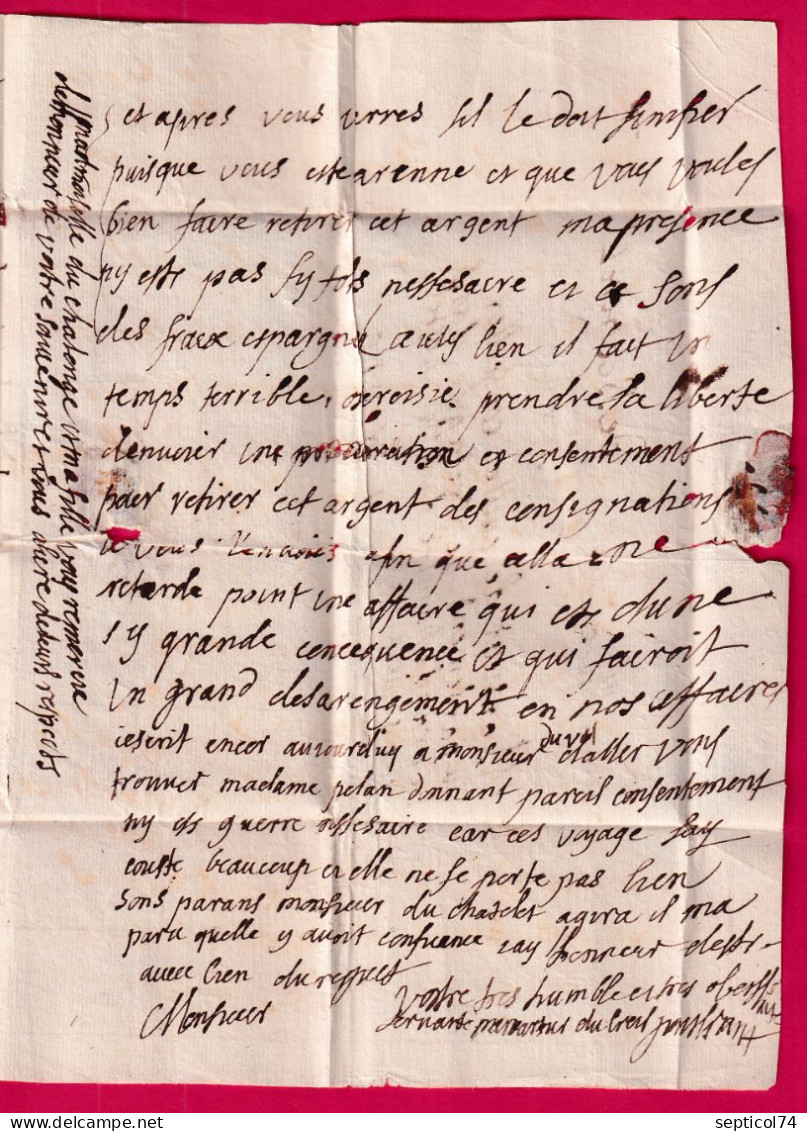 et apres vous verres sil le doit
puisque vous este arenne et que vous voules
bien faire retirer cet argent ma presence
ny este pas sy tots nessesaire et ce sons
des fraix espargne aussy bien il fait un
temps terrible prendre la liberte
denvoier une procuration et consentement
pour retirer cet argent des consignations
je vous lenvois afin que cella ne
retarde point une affaire qui est dune
sy grande concequence et qui fairoit
un grand desarengement en nos affaires
iescrit encor aujourdhuy a monsieur duval daller vous
trouver madame pelan donnant pareil consentement
ny est guerre nessesaire car ces voyage luy
couste beaucoup et elle ne se porte pas bien
sons parans monsieur du chatelet agira il ma
paru quelle y avoit confience jay lhonneur destre
avec bien du respect
Monsieur
vostre tres humble et tres obeissante
servante du
mademoiselle du chalonge et ma fille vous remercie
de lhonneur de vostre souvenir et vous de leurs respects
SEPTICOL74
delcampe.net